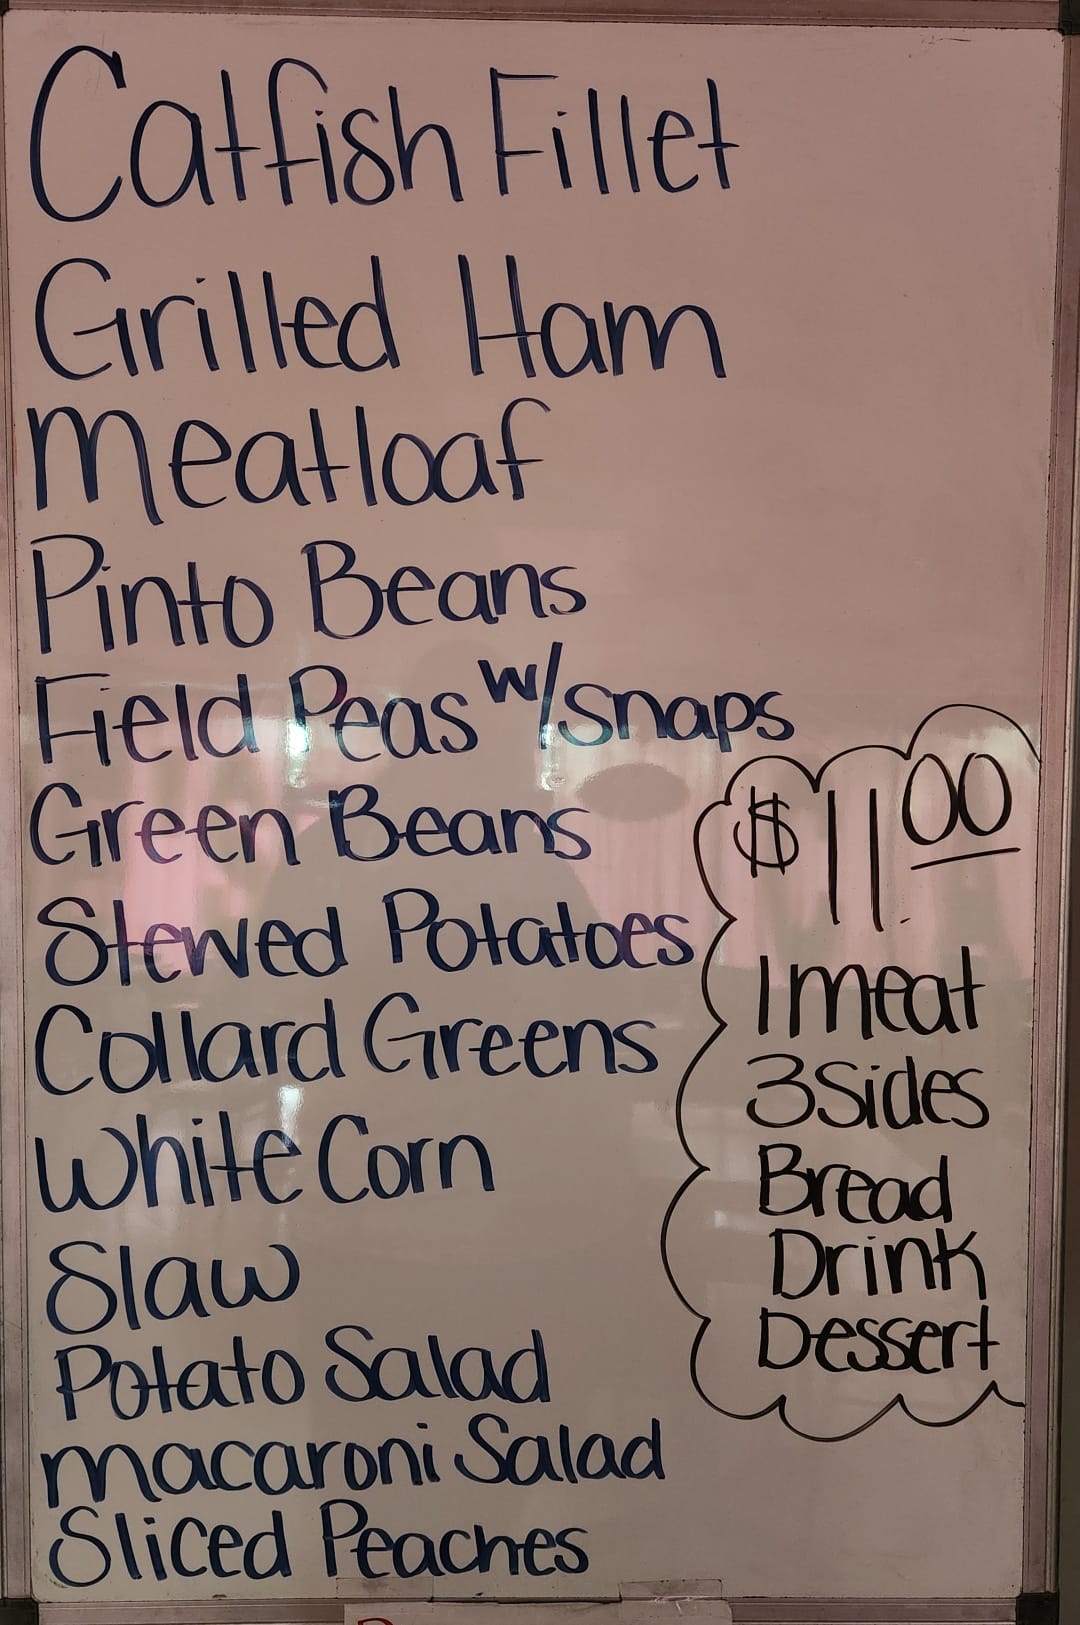 Catfish Fillet
Grilled Ham
Meatloaf
Pinto Beans
Field Peas w/snaps
Green Beans
Stewed Potatoes
Collard Greens
White Corn
Slaw
Potato Salad
macaroni Salad
Sliced Peaches
$11.00
1 meat
3 Sides
Bread
Drink
Dessert